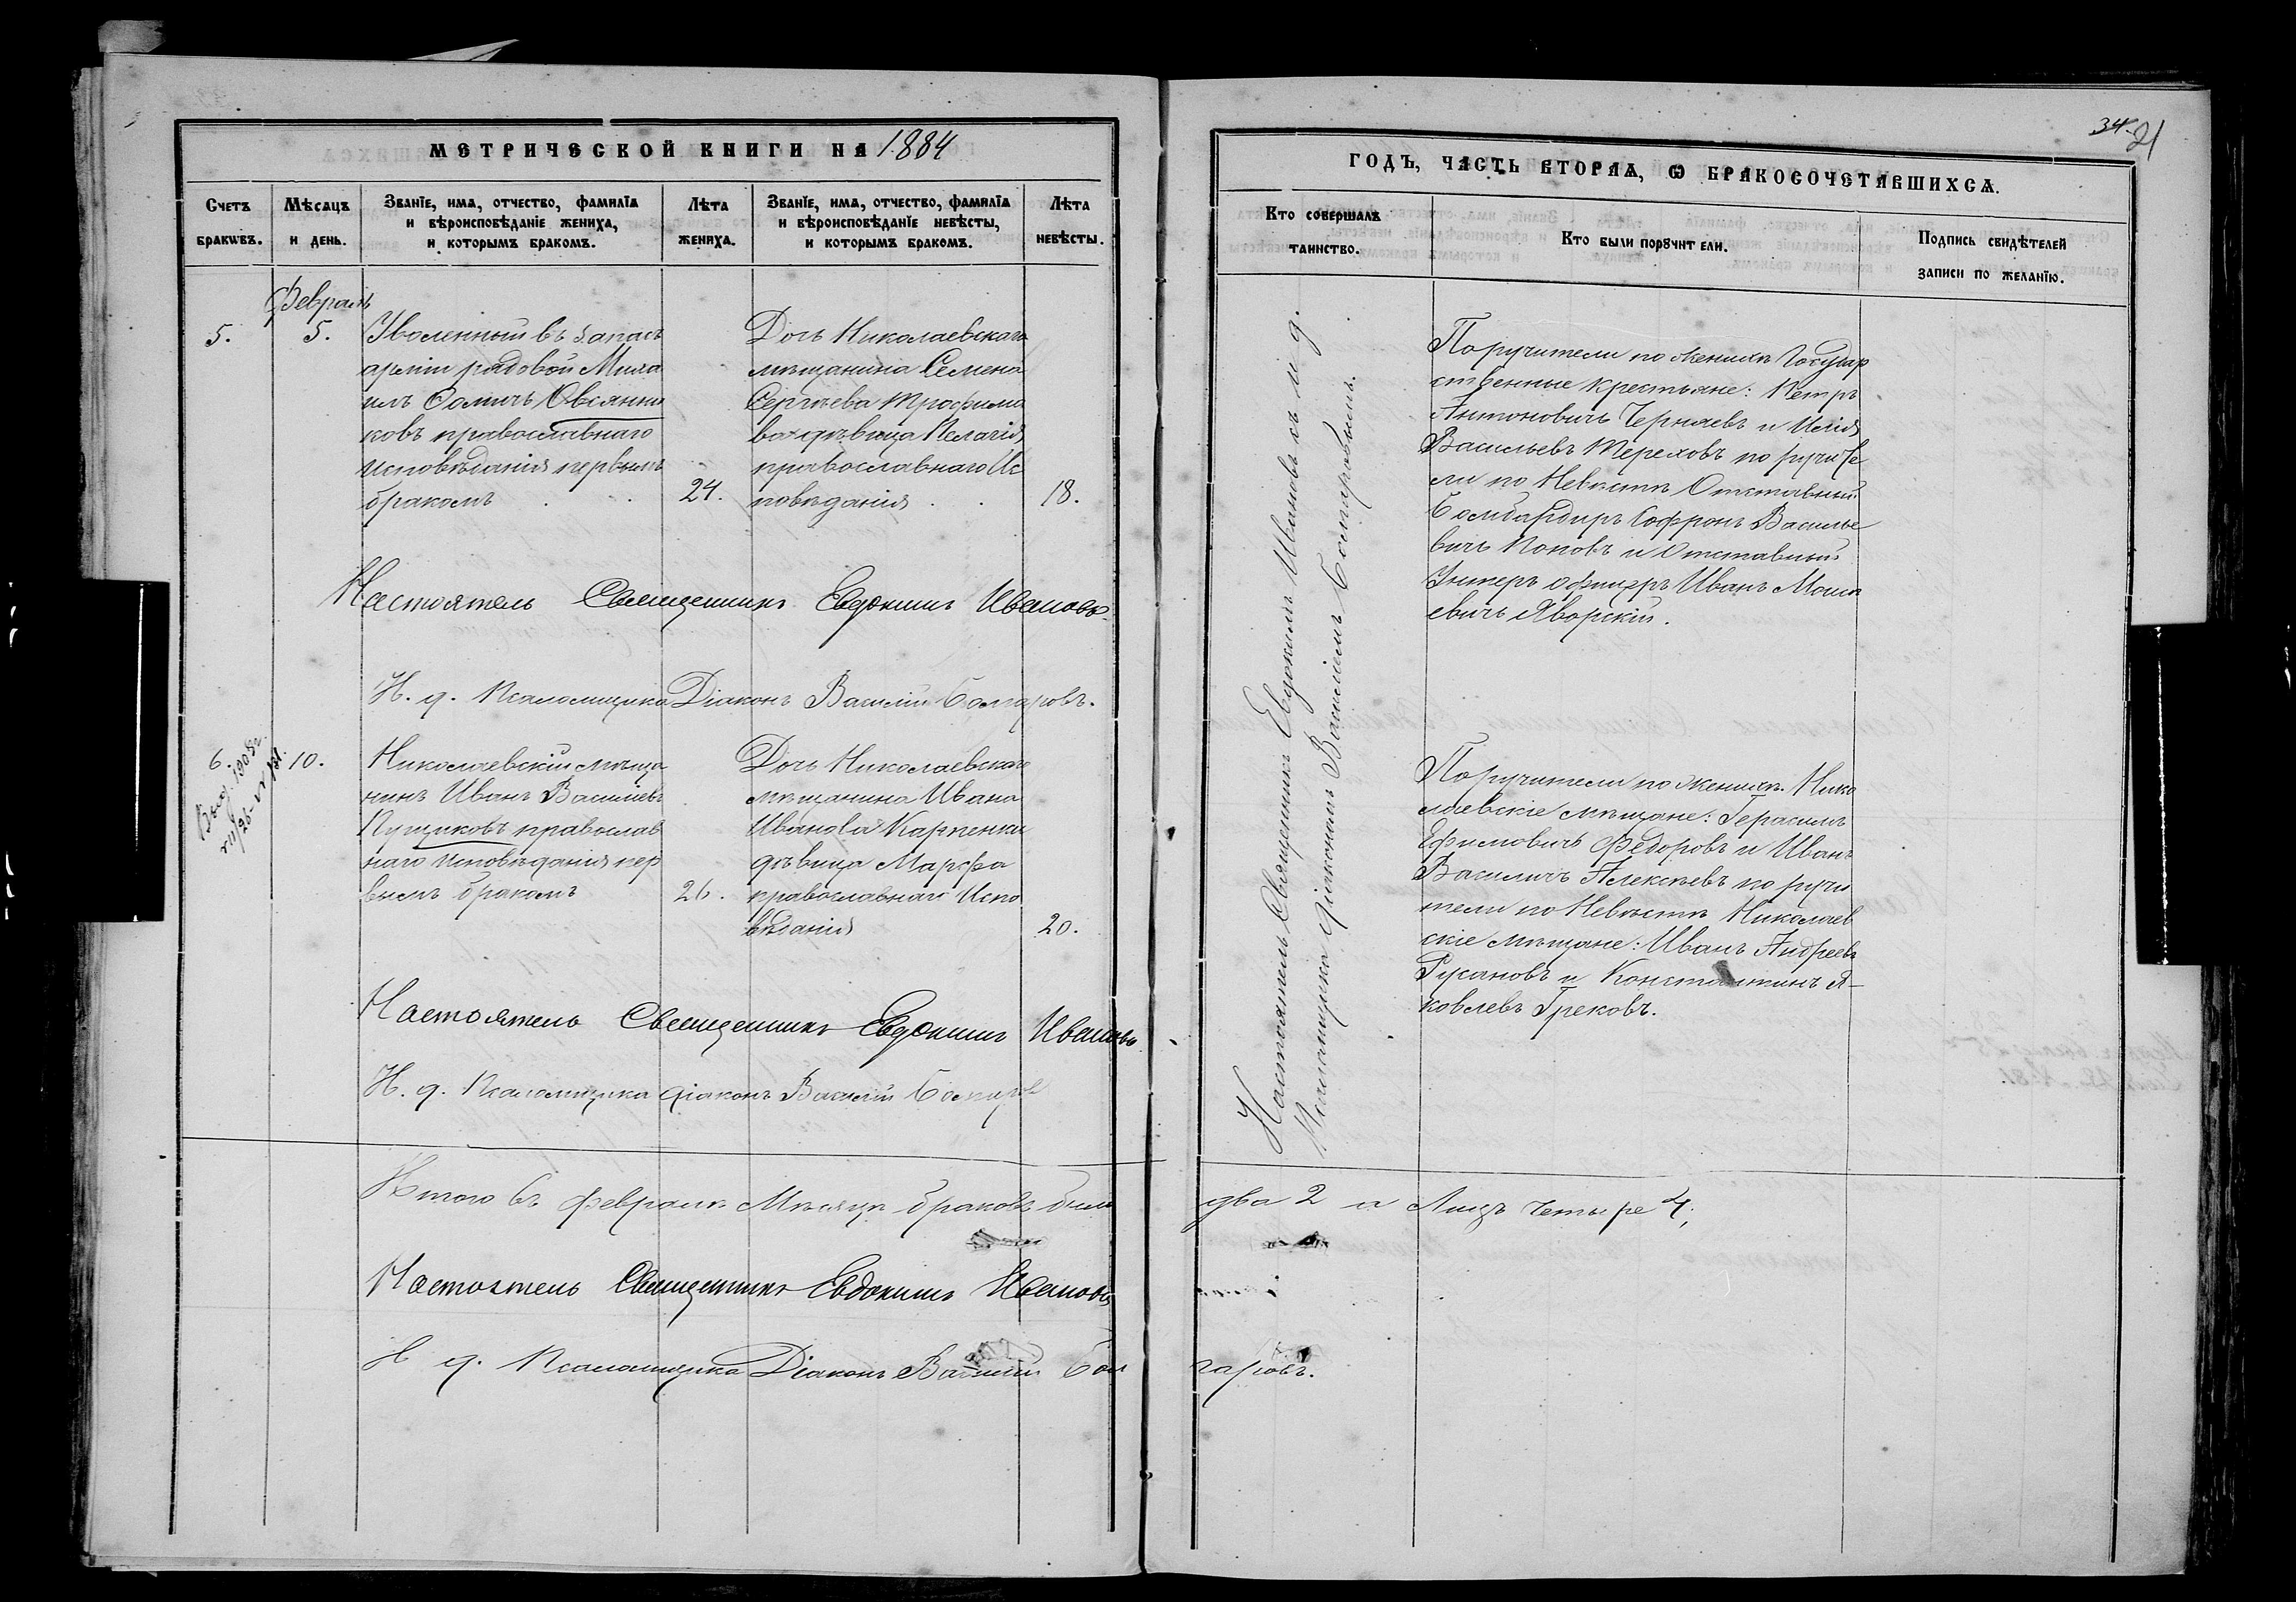 МЕТРИЧЕСКОЙ КНИГИ НА 1884
Счетъ браковъ.
Мѣсяцъ и день.
Званіе, имя, отчество, фамилія и вѣроисповѣданіе жениха, и которымъ бракомъ.
Лѣта жениха.
Званіе, имя, отчество, фамилія и вѣроисповѣданіе невѣсты, и которымъ бракомъ.
Лѣта невѣсты.
Февраль
5.
5.
Уволенный въ запасъ
арміи рядовой Миха
илъ Сомичъ Овсянни
ковъ православнаго
исповѣданія первымъ
бракомъ
24.
Дочь Николаевскаго
мѣщанина Семена
Сергѣева Трофимо
ва дѣвица Пелагія
православнаго Ис
повѣданія
18.
Настоятель Священникъ Евдокимъ Ивановъ
И. д. Псаломщика Діаконъ Василій
6.
10.
Николаевскій мѣща
нинъ Иванъ Василіевъ
Пущиковъ православ
наго исповѣданія пер
вымъ бракомъ
26.
Дочь Николаевскаго
мѣщанина Ивана
Иванова Карпенки
дѣвица Марфа
православнаго Испо
вѣданія
20.
Настоятель Священникъ Евдокимъ Ивановъ
И. д. Псаломщика діаконъ Василій
Итого въ Февралѣ Мѣсяцѣ браковъ было
Настоятель Священникъ Евдокимъ Ивановъ
И д. Псаломщика Діаконъ Василій
34
21
ГОДЪ, ЧАСТЬ ВТОРАЯ, Ѡ БРАКОСОЧЕТАВШИХСЯ.
Кто совершалъ таинство.
Кто были поручители.
Подпись свидѣтелей записи по желанію.
Настоятель Священникъ Евдокимъ Ивановъ съ и д.
Псаломщика діакономъ Василіемъ
Поручители по женихѣ Государ
ственные крестьяне: Петръ
Антоновичъ Черняевъ и Илія
Васильевъ Тереховъ по ручите
ли по Невѣстѣ Отставный
Бомбардиръ Софронъ Василье
вичъ Поповъ и Отставный
Унтеръ офицеръ Иванъ
евичъ Яворскій.
Поручители по женихѣ Нико
лаевскіе мѣщане: Герасимъ
Ефимовичъ Федоровъ и Иванъ
Василичъ Алексѣевъ по ручи
тели по Невѣстѣ Николаев
скіе мѣщане: Иванъ Андреевъ
Русановъ и Константинъ Я-
ковлевъ Грековъ.
два 2 а Лицъ четыре 4,
гаровъ.